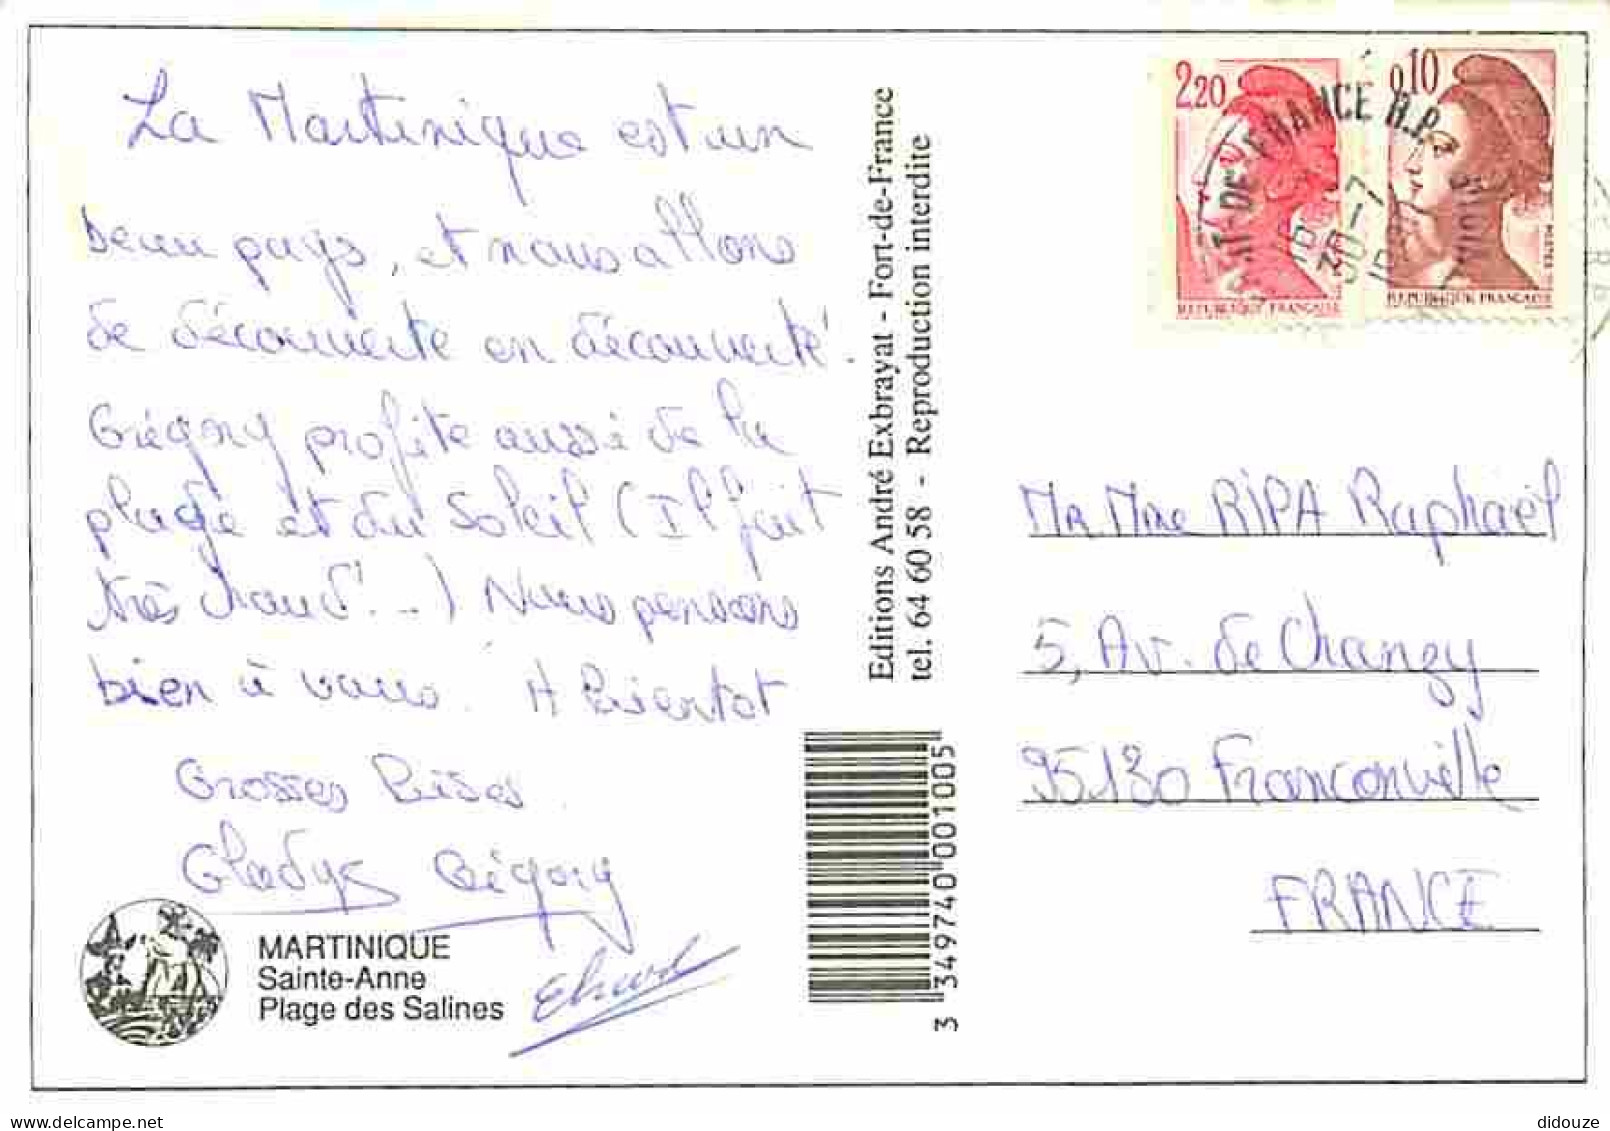 La Martinique est un
beau pays, et nous allons
de découverte en découverte.
Grégory profite aussi de la
plage et du soleil (Il fait
très chaud!...) Nous pensons
bien à vous. A bientot
Grosses Bises.
Gladys Grégory
MARTINIQUE
Sainte-Anne
Plage des Salines
Editions André Exbrayat - Fort-de-France
tel. 64 60 58 - Reproduction interdite
3 349740 001005
2,20
REPUBLIQUE FRANÇAISE
0,10
POSTES
REPUBLIQUE FRANÇAISE
FORT-DE-FRANCE R.P.
30-7
Mr Mme RIPA Raphaël
5, Av. de Changy
95130 Franconville
FRANCE
didouze